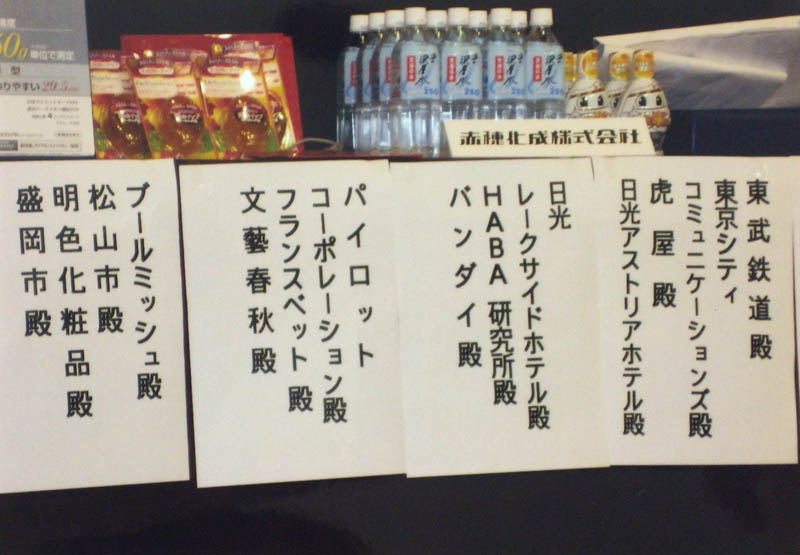 単位で測定
赤穂化成株式会社
250
東武鉄道殿
東京シティ
コミュニケーションズ殿
虎屋殿
日光アストリアホテル殿
日光
レークサイドホテル殿
HABA研究所殿
バンダイ殿
パイロット
コーポレーション殿
フランスベット殿
文藝春秋殿
ブールミッシュ殿
松山市殿
明色化粧品殿
盛岡市殿